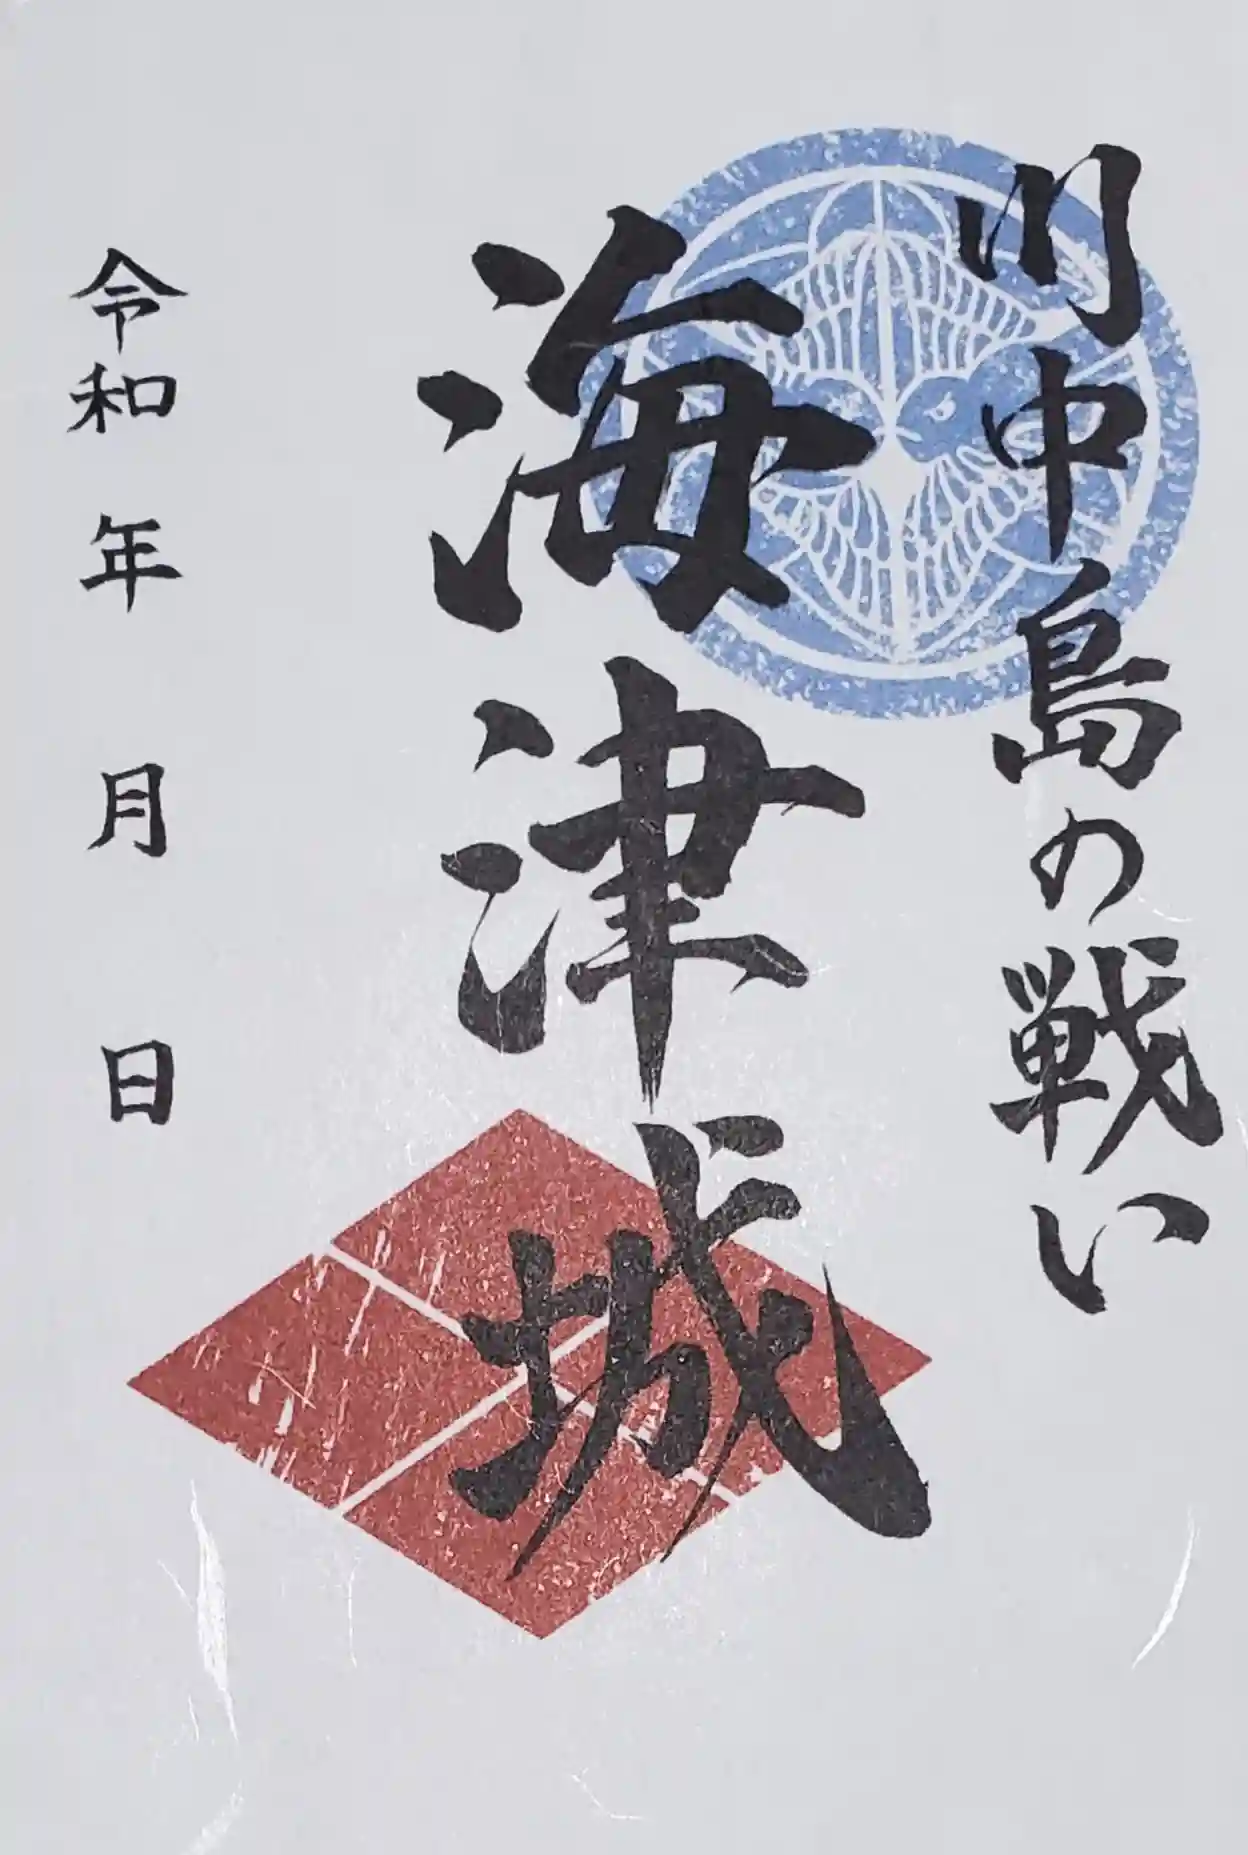 川中島の戦い
海津城
令和 年 月 日